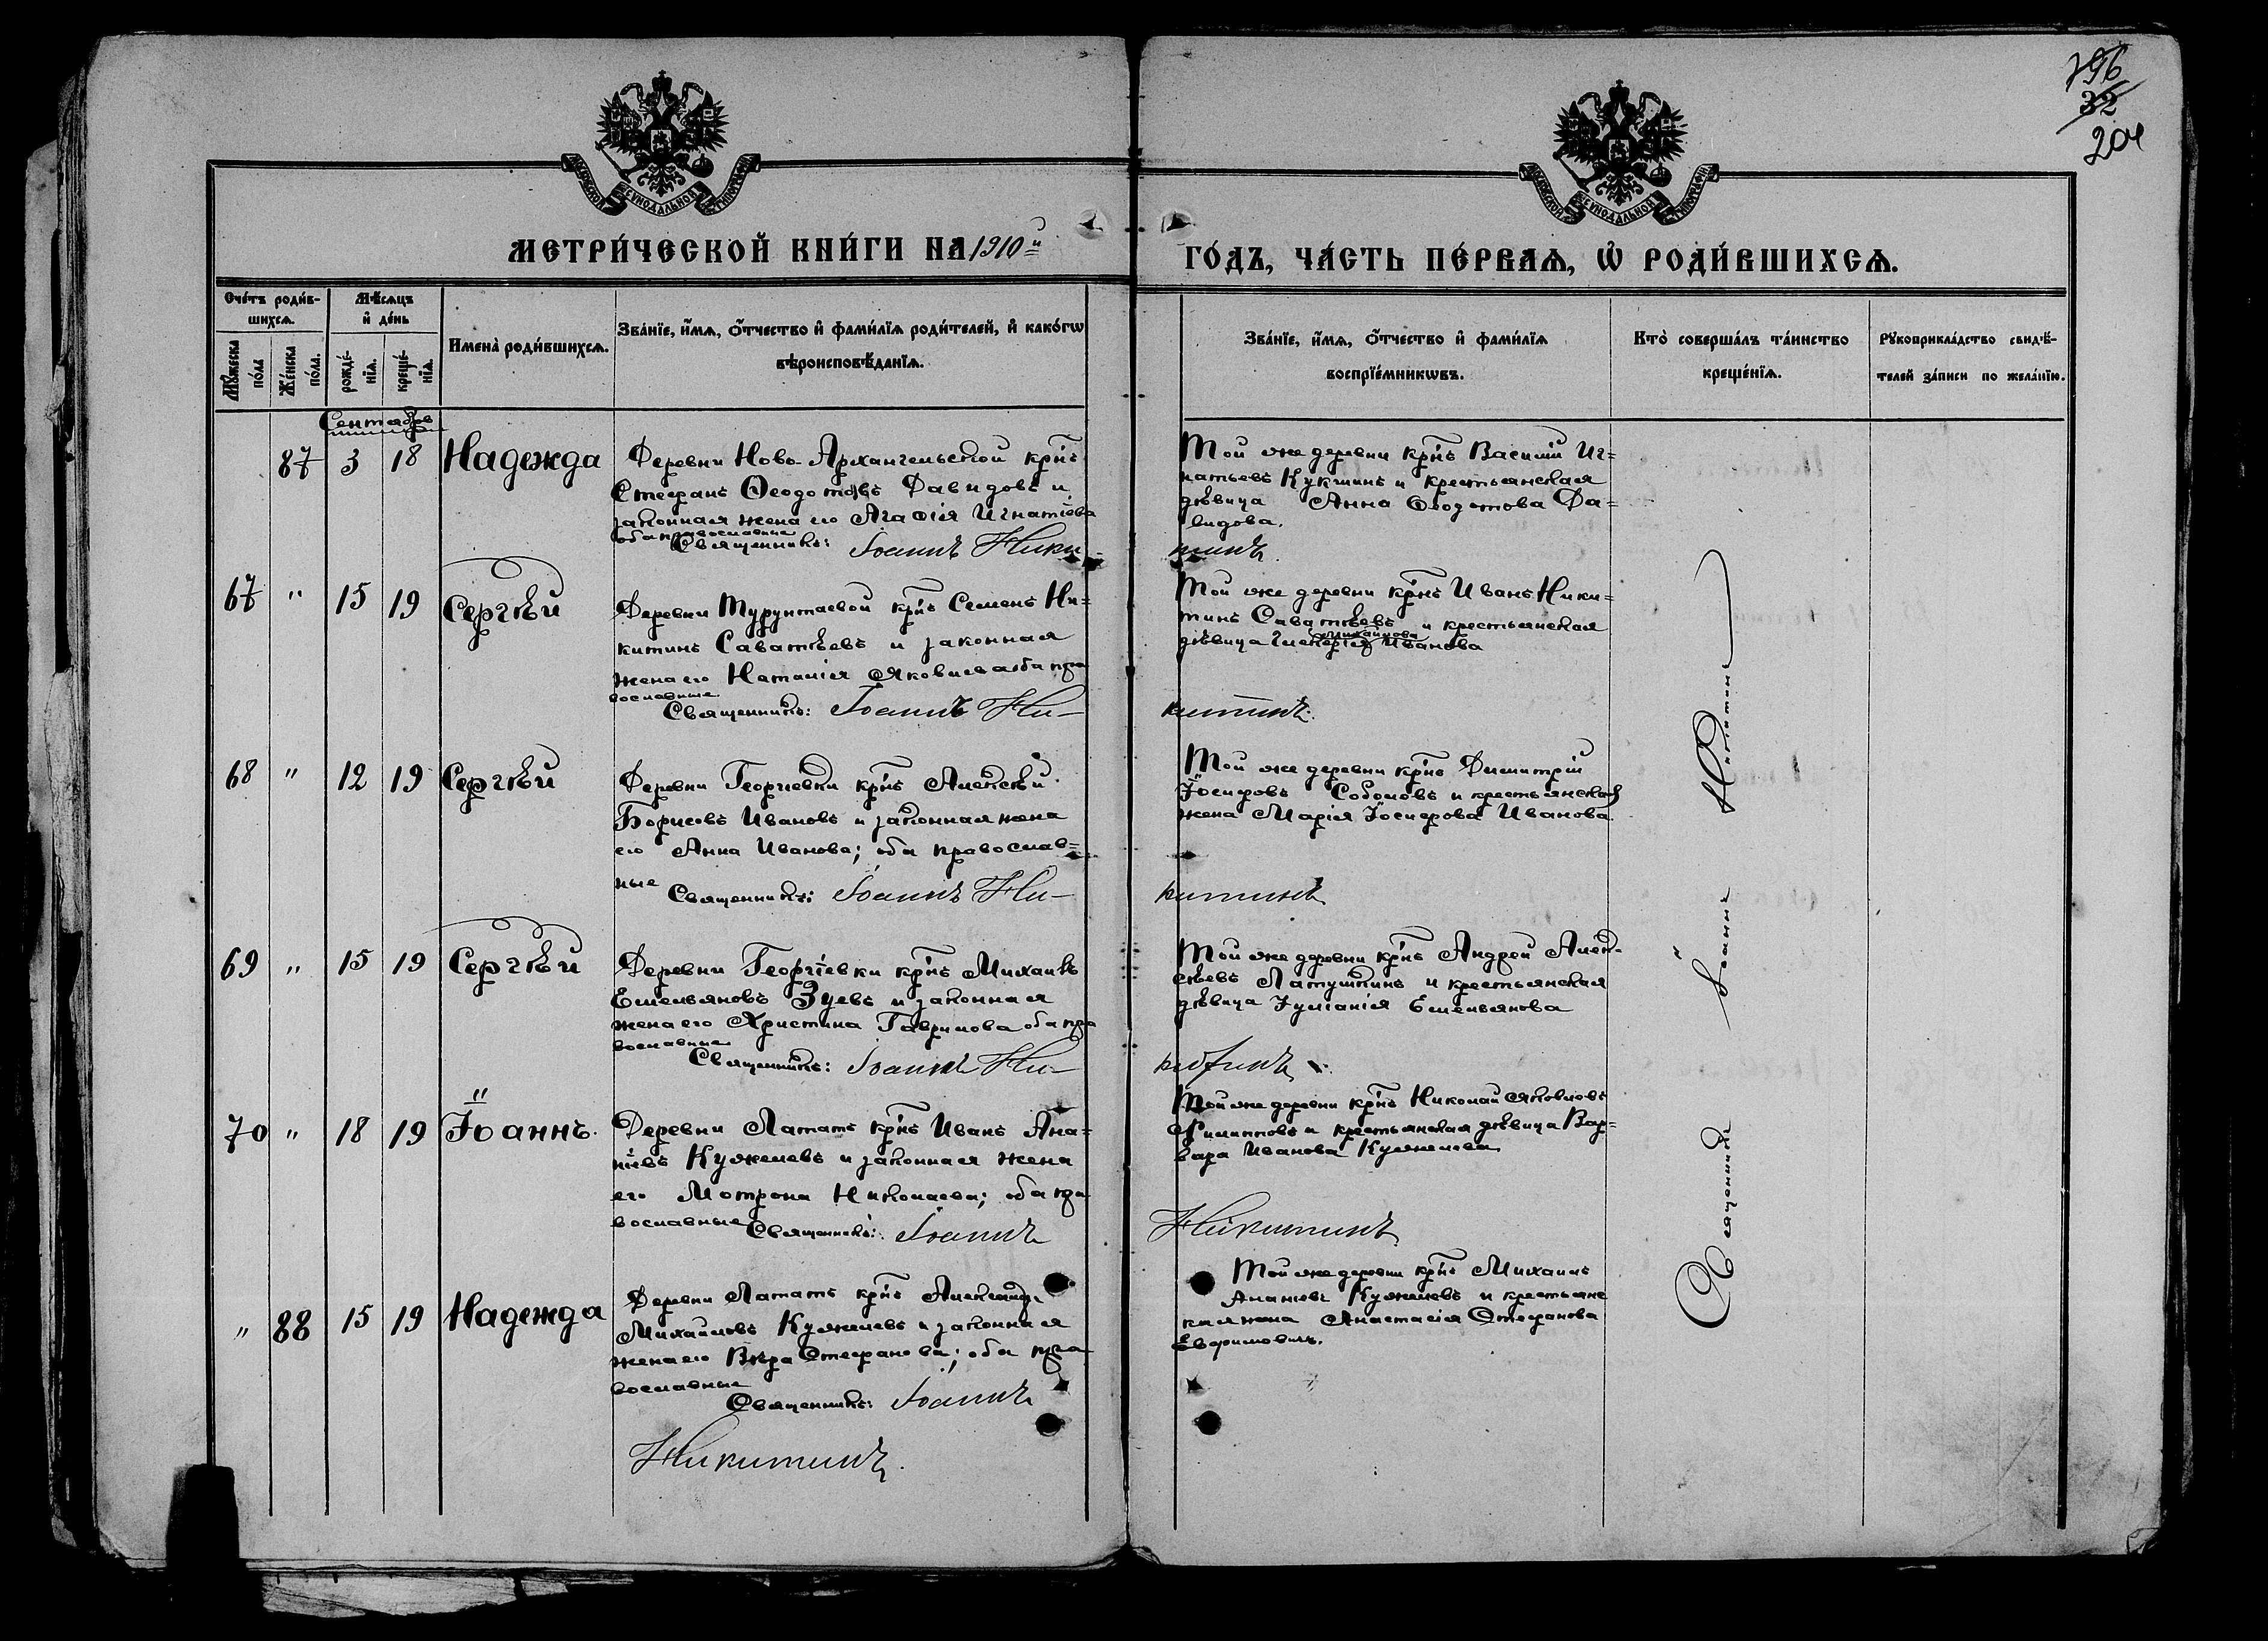 796
32
204
МОСКОВСКОЙ СУНОДАЛЬНОЙ ТИПОГРАФІИ
МОСКОВСКОЙ СУНОДАЛЬНОЙ ТИПОГРАФІИ
МЕТРИ́ЧЕСКОЙ КНИ́ГИ НА 1910й
ГО́ДЪ, ЧА́СТЬ ПЕ́РВАѦ, Ѡ҆ РОДИ́ВШИХСѦ.
Сче́тъ роди́в-
шихсѧ.
Мꙋ́жеска по́ла
Же́нска по́ла.
Мѣ́сѧцъ
и҆ де́нь
рожде́-
нїѧ.
креще́-
нїѧ.
Имена̀ роди́вшихсѧ.
Зва́нїе, и҆́мѧ, ѻ҆́тчество и҆ фами́лїѧ роди́телей, и҆ како́гѡ
вѣроисповѣ́данїѧ.
Зва́нїе, и҆́мѧ, ѻ҆́тчество и҆ фами́лїѧ
воспрїе́мникѡвъ.
Кто̀ соверша́лъ та́инство
креще́нїѧ.
Рꙋкоприкла́дство свидѣ́-
телей за́писи по жела́нїю.
Сентябрь
87 3 18 Надежда
Деревни Ново-Архангельской крⷭ҇нъ
Стефанъ Ѳеодотовъ Давидовъ и
законная жена его Агаѳія Игнатіева
оба православные
Священникъ: Іоаннъ Ники-
Той же деревни крⷭ҇нъ Василій Иг=
натьевъ Кукшинъ и крестьянская
дѣвица Анна Ѳеодотова Да=
видова.
тинъ.
67 " 15 19 Сергѣй
Деревни Турунтаевой крⷭ҇нъ Семенъ Ни=
китинъ Саватѣевъ и законная
жена его Наталія Яковлева оба пра
вославные
Священникъ: Іоаннъ Ни-
Той же деревни крⷭ҇нъ Иванъ Ники=
тинъ Саватѣевъ и крестьянская
Михайлова
дѣвица Гликерія Иванова
китинъ.
68 " 12 19 Сергѣй
Деревни Георгіевки крⷭ҇нъ Алексѣй
Борисовъ Ивановъ и законная жена
его Анна Иванова; оба православ=
ные
Священникъ: Іоаннъ Ни-
Той же деревни крⷭ҇нъ Димитрій
Іосифовъ Соболовъ и крестьянская
жена Марія Іосифова Иванова.
китинъ
69 " 15 19 Сергѣй
Деревни Георгіевки крⷭ҇нъ Михаилъ
Емельяновъ Зуевъ и законная
жена его Христина Гаврилова оба пра
вославные
Священникъ: Іоаннъ Ни-
Той же деревни крⷭ҇нъ Андрей Алек-
сѣевъ Латушкинъ и крестьянская
дѣвица Іуліанія Емельянова
китинъ.
70 " 18 19 Іоаннъ.
Деревни Лататъ крⷭ҇нъ Иванъ Ана=
ніевъ Кужелевъ и законная жена
его Мотрона Николаева; оба пра
вославные Священникъ: Іоаннъ
Той же деревни крⷭ҇нъ Николай Яковлевъ
Филипповъ и крестьянская дѣвица Вар=
вара Иванова Кужелева
Никитинъ
" 88 15 19 Надежда
Деревни Лататъ крⷭ҇нъ Александръ
Михаиловъ Кужелевъ и законная
жена его Вѣра Стефанова; оба пра
вославные
Священникъ: Іоаннъ
Никитинъ.
Той же деревни крⷭ҇нъ Михаилъ
Ананьевъ Кужелевъ и крестьянс
кая жена Анастасія Стефанова
Священникъ Іоаннъ Никитинъ